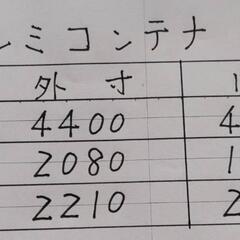 ミコンテナ
外 寸
4400 4
2080 1
2210 2